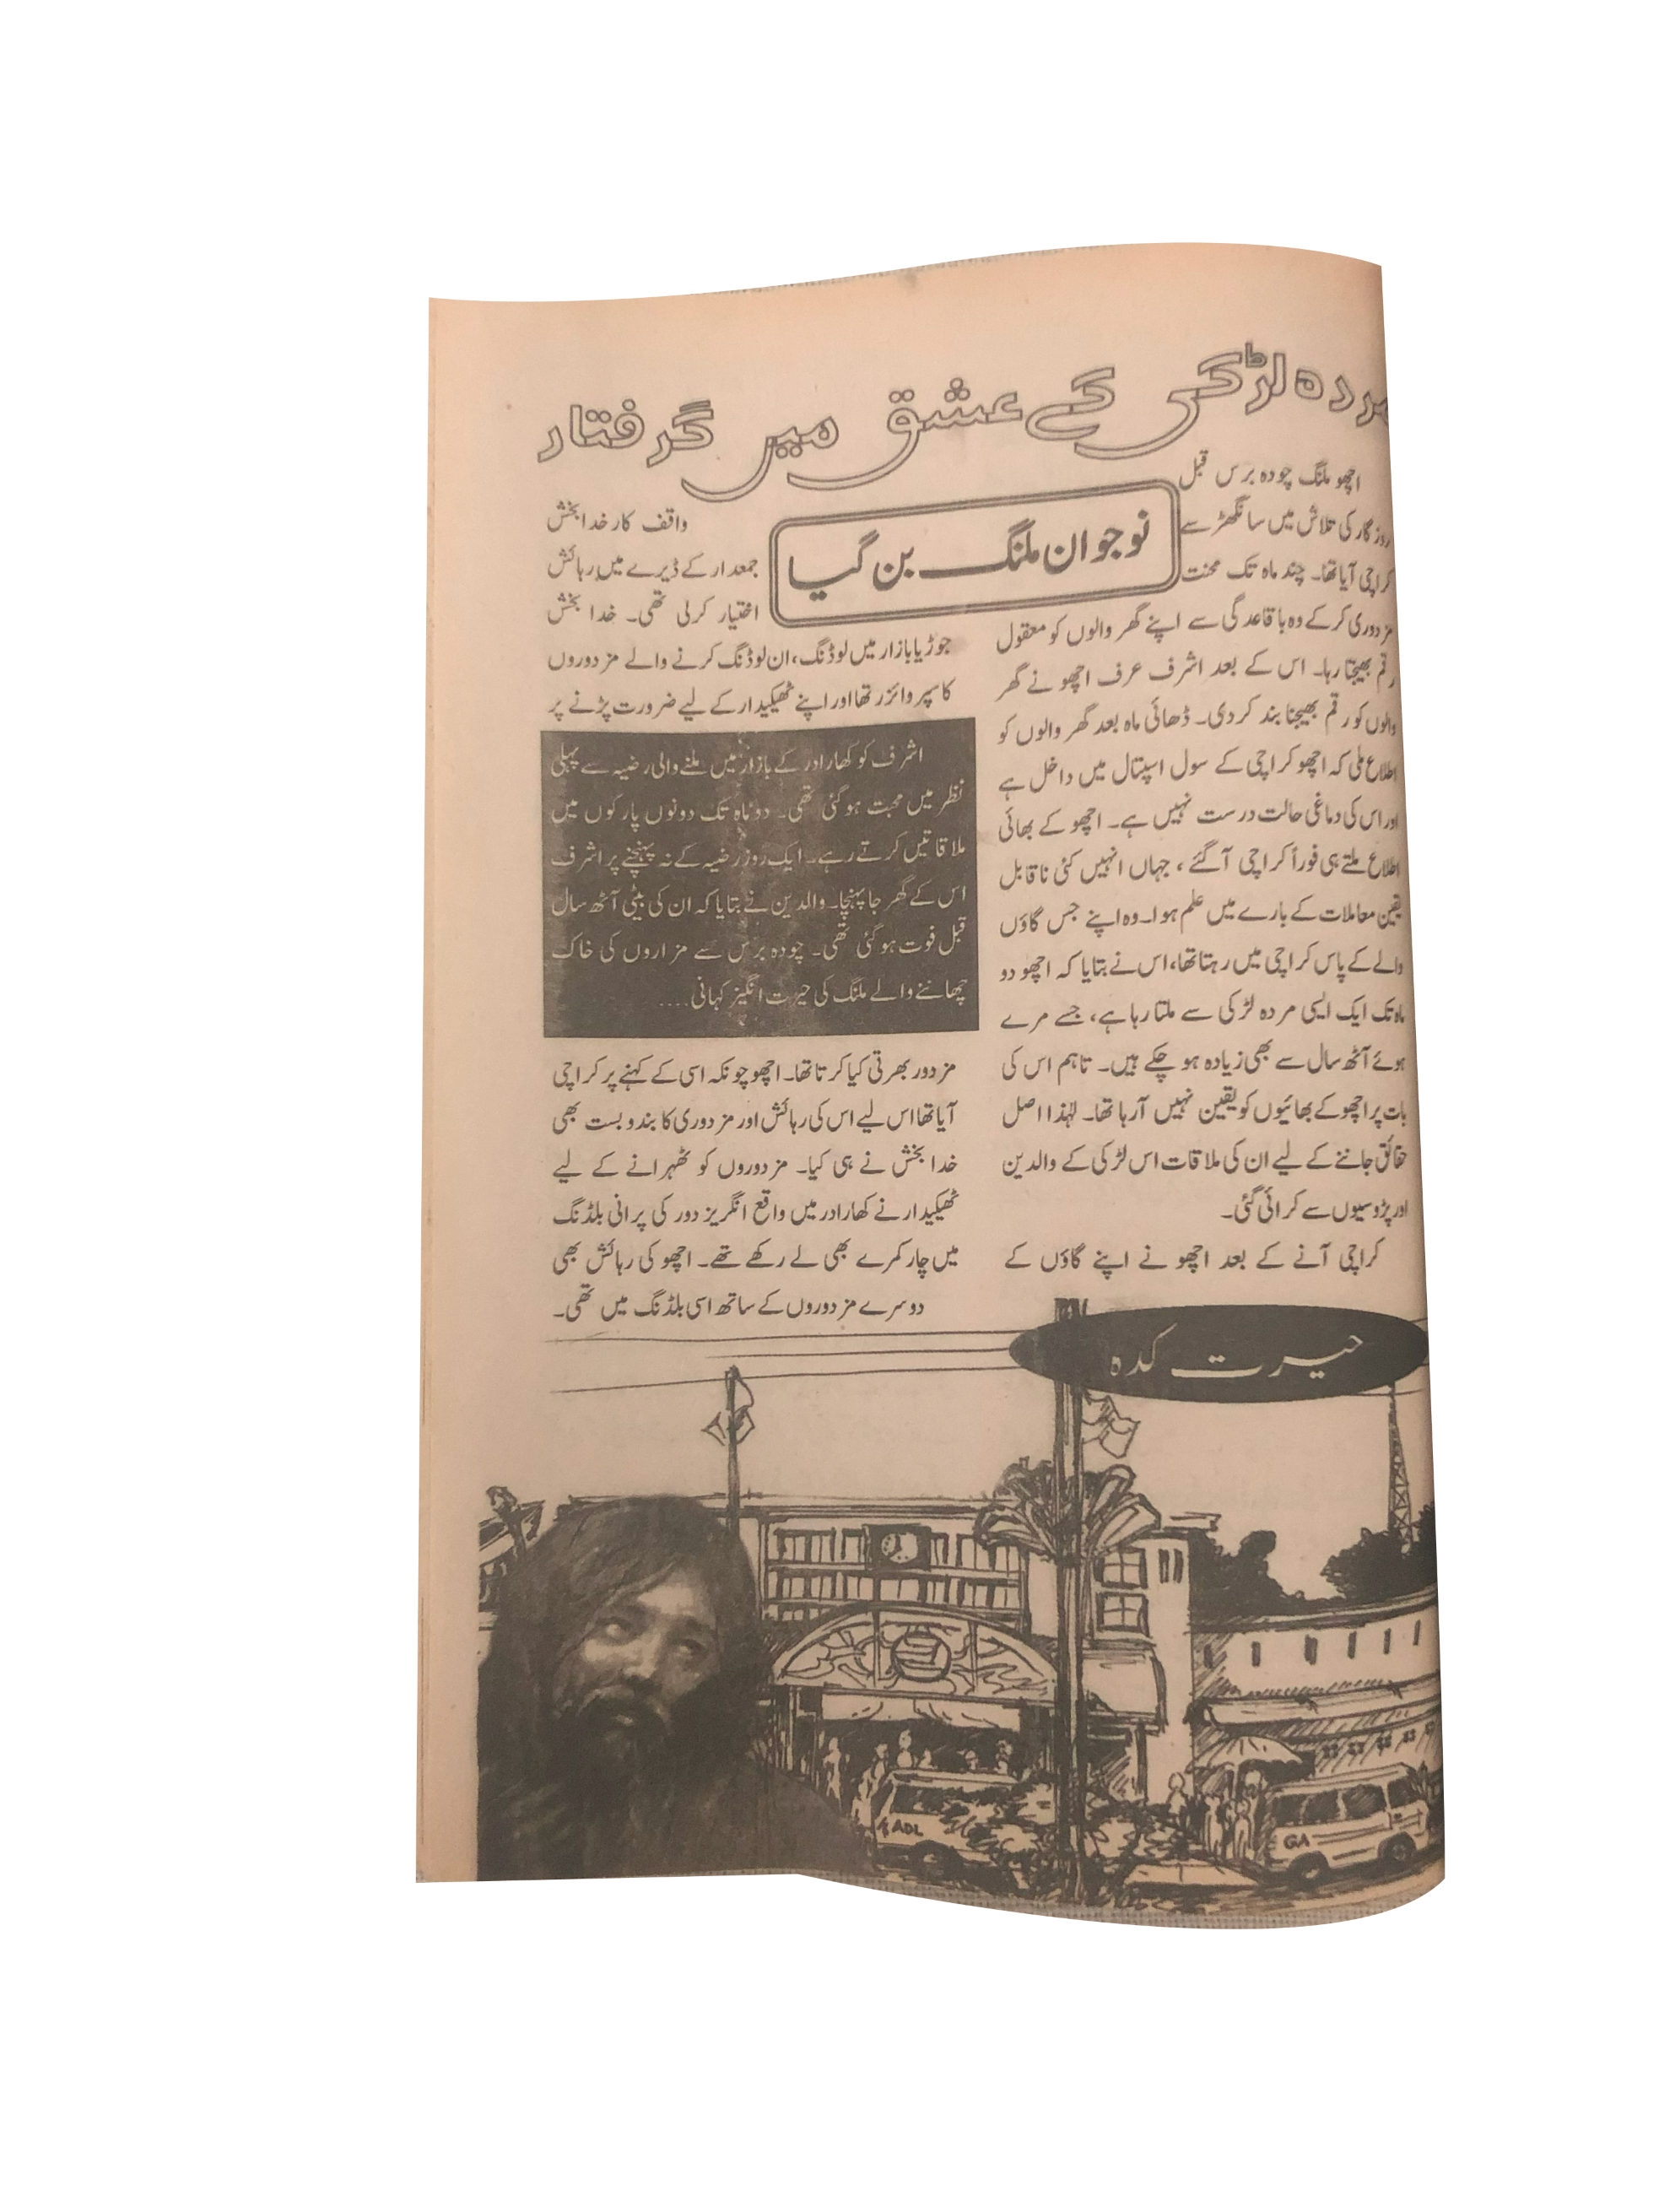 مردہ لڑکی کے عشق میں گرفتار
نوجوان ملنگ بن گیا
اچھو ملنگ چودہ برس قبل
روزگار کی تلاش میں سانگھڑ سے
کراچی آیا تھا۔ چند ماہ تک محنت
مزدوری کرکے وہ باقاعدگی سے اپنے گھر والوں کو معقول
رقم بھیجتا رہا۔ اس کے بعد اشرف عرف اچھو نے گھر
والوں کو رقم بھیجنا بند کر دی۔ ڈھائی ماہ بعد گھر والوں کو
اطلاع ملی کہ اچھو کراچی کے سول اسپتال میں داخل ہے
اور اس کی دماغی حالت درست نہیں ہے۔ اچھو کے بھائی
اطلاع ملتے ہی فوراً کراچی آگئے، جہاں انہیں کئی ناقابل
یقین معاملات کے بارے میں علم ہوا۔ وہ اپنے جس گاؤں
والے کے پاس کراچی میں رہتا تھا، اس نے بتایا کہ اچھو دو
ماہ تک ایک ایسی مردہ لڑکی سے ملتا رہا ہے، جسے مرے
ہوئے آٹھ سال سے بھی زیادہ ہو چکے ہیں۔ تاہم اس کی
بات پر اچھو کے بھائیوں کو یقین نہیں آرہا تھا۔ لہٰذا اصل
حقائق جاننے کے لیے ان کی ملاقات اس لڑکی کے والدین
اور پڑوسیوں سے کرائی گئی۔
کراچی آنے کے بعد اچھو نے اپنے گاؤں کے
واقف کار خدا بخش
جمعدار کے ڈیرے میں رہائش
اختیار کرلی تھی۔ خدا بخش
جوڑیا بازار میں لوڈنگ، ان لوڈنگ کرنے والے مزدوروں
کا سپروائزر تھا اور اپنے ٹھیکیدار کے لیے ضرورت پڑنے پر
اشرف کو کھارادر کے بازار میں ملنے والی رضیہ سے پہلی
نظر میں محبت ہوگئی تھی۔ دو ماہ تک دونوں پارکوں میں
ملاقاتیں کرتے رہے۔ ایک روز رضیہ کے نہ پہنچنے پر اشرف
اس کے گھر جا پہنچا۔ والدین نے بتایا کہ ان کی بیٹی آٹھ سال
قبل فوت ہوگئی تھی۔ چودہ برس سے مزاروں کی خاک
چھاننے والے ملنگ کی حیرت انگیز کہانی....
مزدور بھرتی کیا کرتا تھا۔ اچھو چونکہ اسی کے کہنے پر کراچی
آیا تھا اس لیے اس کی رہائش اور مزدوری کا بندوبست بھی
خدا بخش نے ہی کیا۔ مزدوروں کو ٹھہرانے کے لیے
ٹھیکیدار نے کھارادر میں واقع انگریز دور کی پرانی بلڈنگ
میں چار کمرے بھی لے رکھے تھے۔ اچھو کی رہائش بھی
دوسرے مزدوروں کے ساتھ اسی بلڈنگ میں تھی۔
حیرت کدہ
ADL
GA